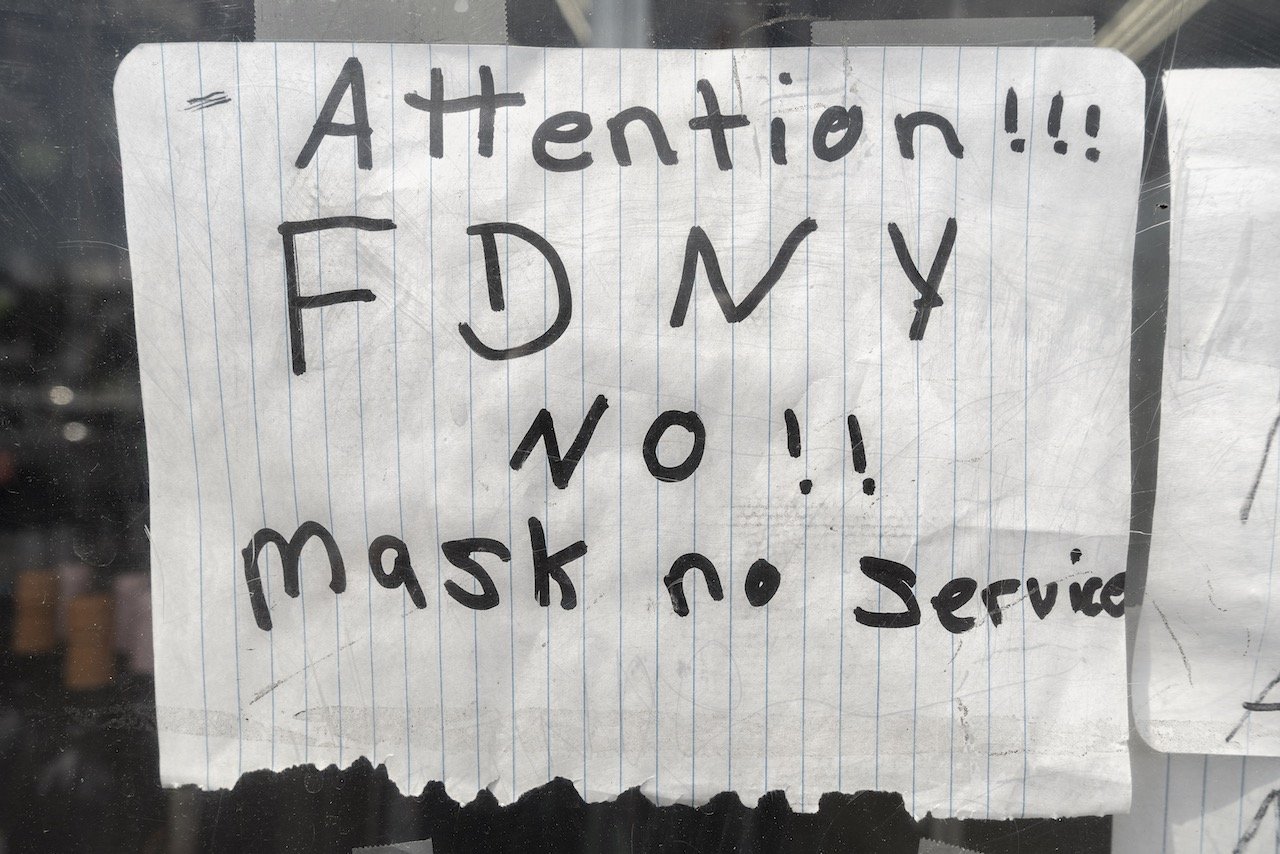 Attention!!!
FDNY
NO!!
Mask no service